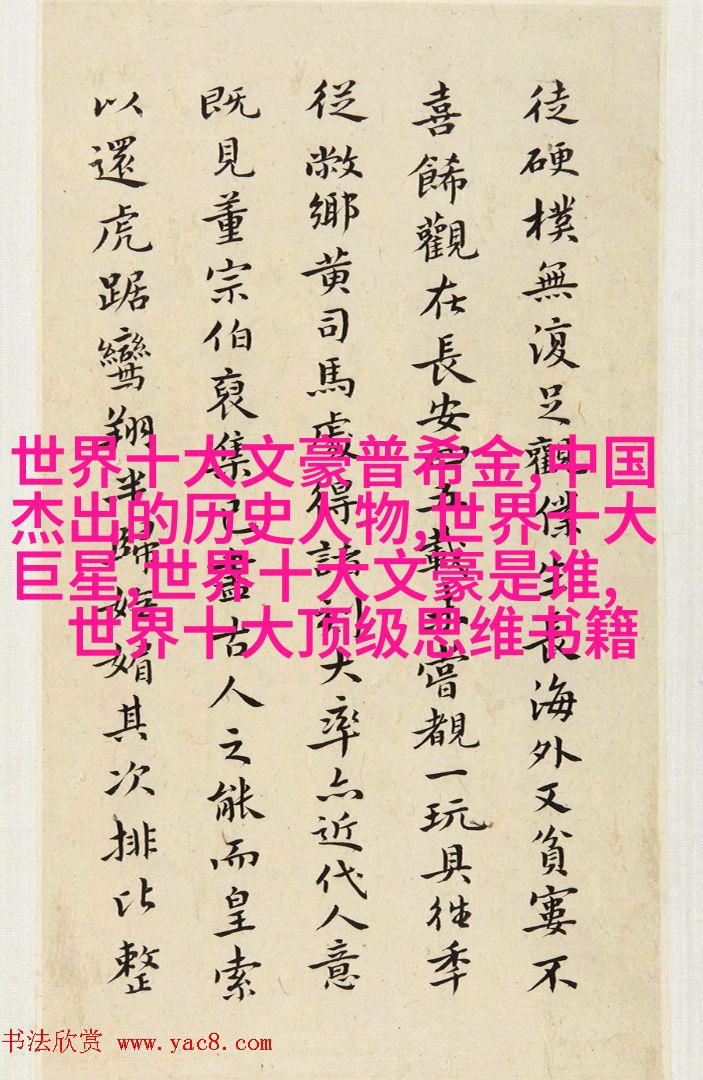 徒硬樸無復足觀僕生長海外又貧窶不
喜餙觀在長安四五載未嘗覩一玩具往季
從敝鄉黄司馬處得諸刻大率亦近代人意
既見董宗伯裒集已盡古人之能而皇索
以還虎踞鸞翔歸媚其次排比整
世界十大文豪普希金,中国
杰出的历史人物,世界十大
巨星,世界十大文豪是谁,
世界十大顶级思维书籍
书法欣赏 www.yac8.com